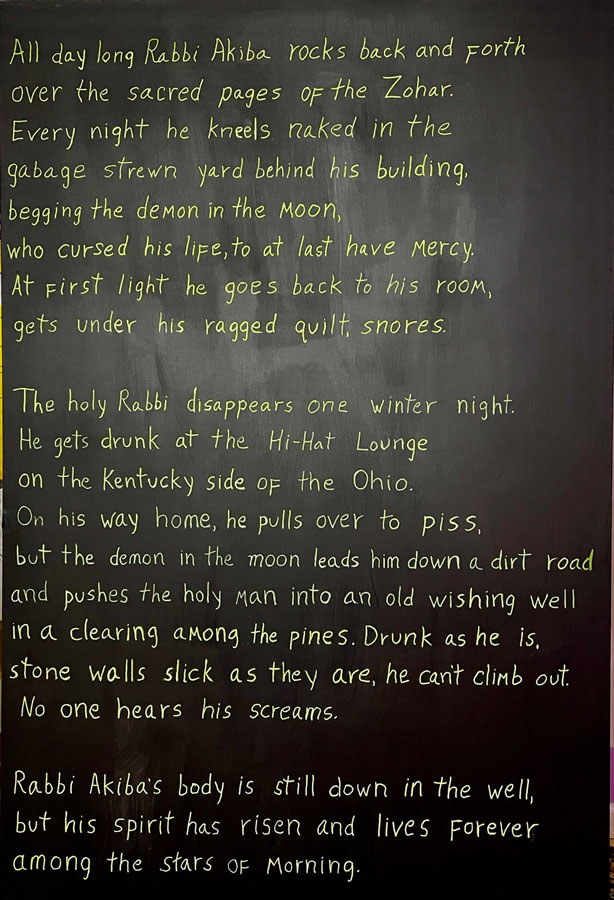 All day long Rabbi Akiba rocks back and forth
over the sacred pages of the Zohar.
Every night he kneels naked in the
gabage strewn yard behind his building,
begging the demon in the moon,
who cursed his life, to at last have mercy.
At first light he goes back to his room,
gets under his ragged quilt, snores.
The holy Rabbi disappears one winter night.
He gets drunk at the Hi-Hat Lounge
on the Kentucky side of the Ohio.
On his way home, he pulls over to piss,
but the demon in the moon leads him down a dirt road
and pushes the holy man into an old wishing well
in a clearing among the pines. Drunk as he is,
stone walls slick as they are, he can't climb out.
No one hears his screams.
Rabbi Akiba's body is still down in the well,
but his spirit has risen and lives forever
among the stars of morning.